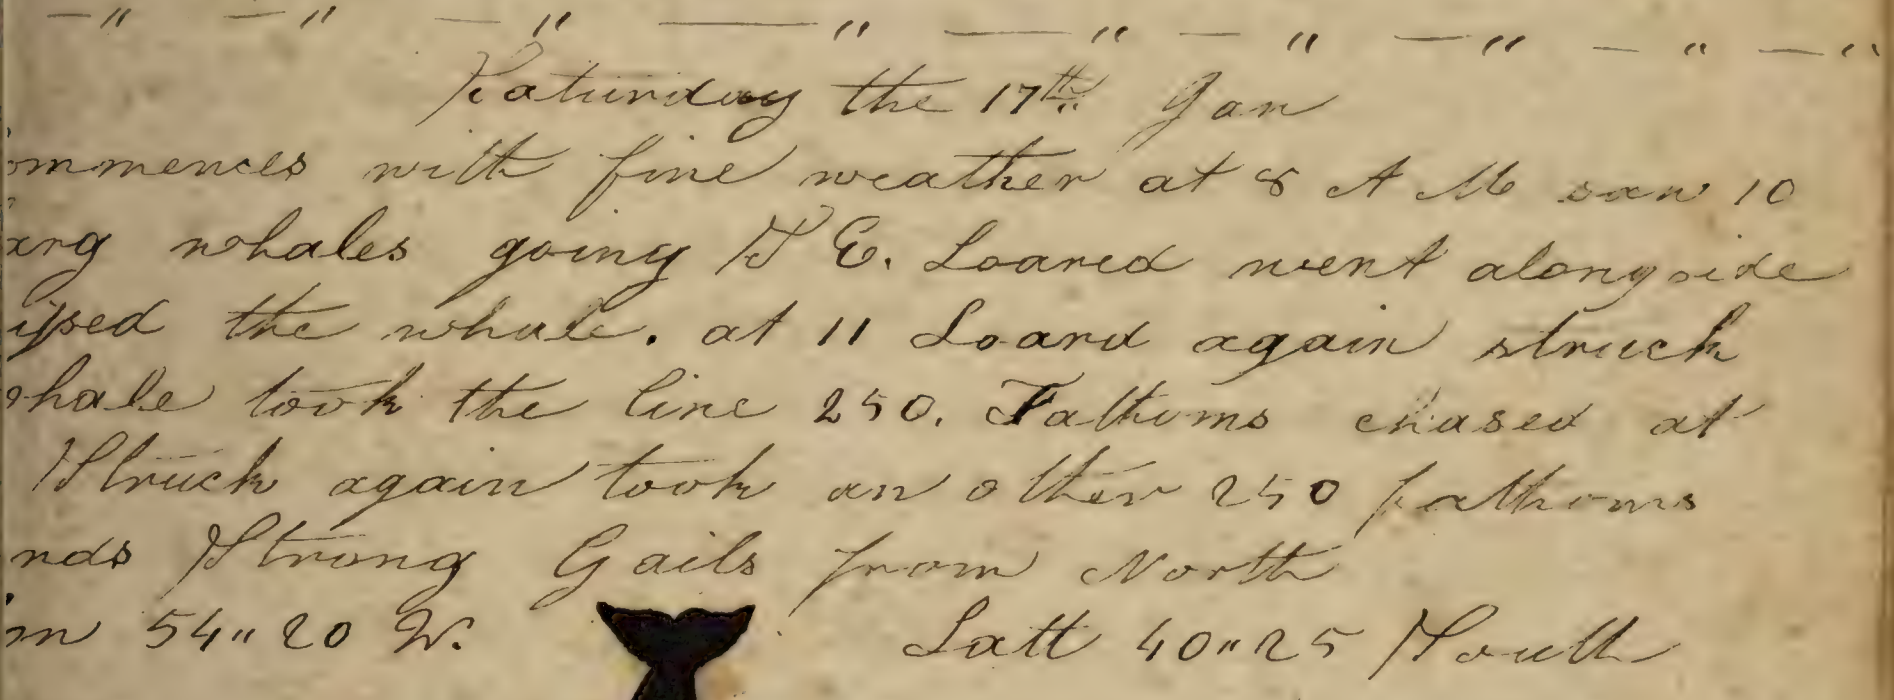 — " — " — " — " — " — " — " — " — "
Saturday the 17th Jan
ommences with fine weather at 8 A M saw 10
arg whales going S E. Loared went alongside
issed the whale. at 11 Loard again struck
hale took the line 250. Fathoms chased at
Struck again took an other 250 fathoms
nds Strong Gails from North
on 54" 20 W. Latt 40" 25 South